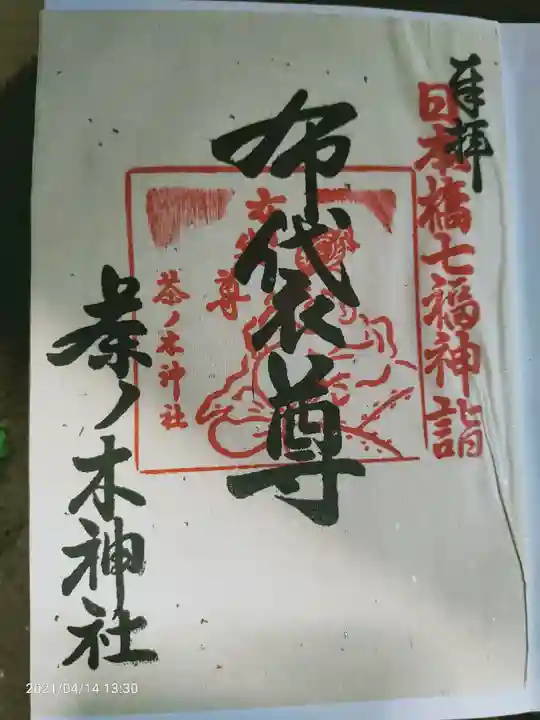 奉拝
日本橋七福神詣
布袋尊
布袋尊
茶ノ木神社
茶ノ木神社
2021/04/14 13:30